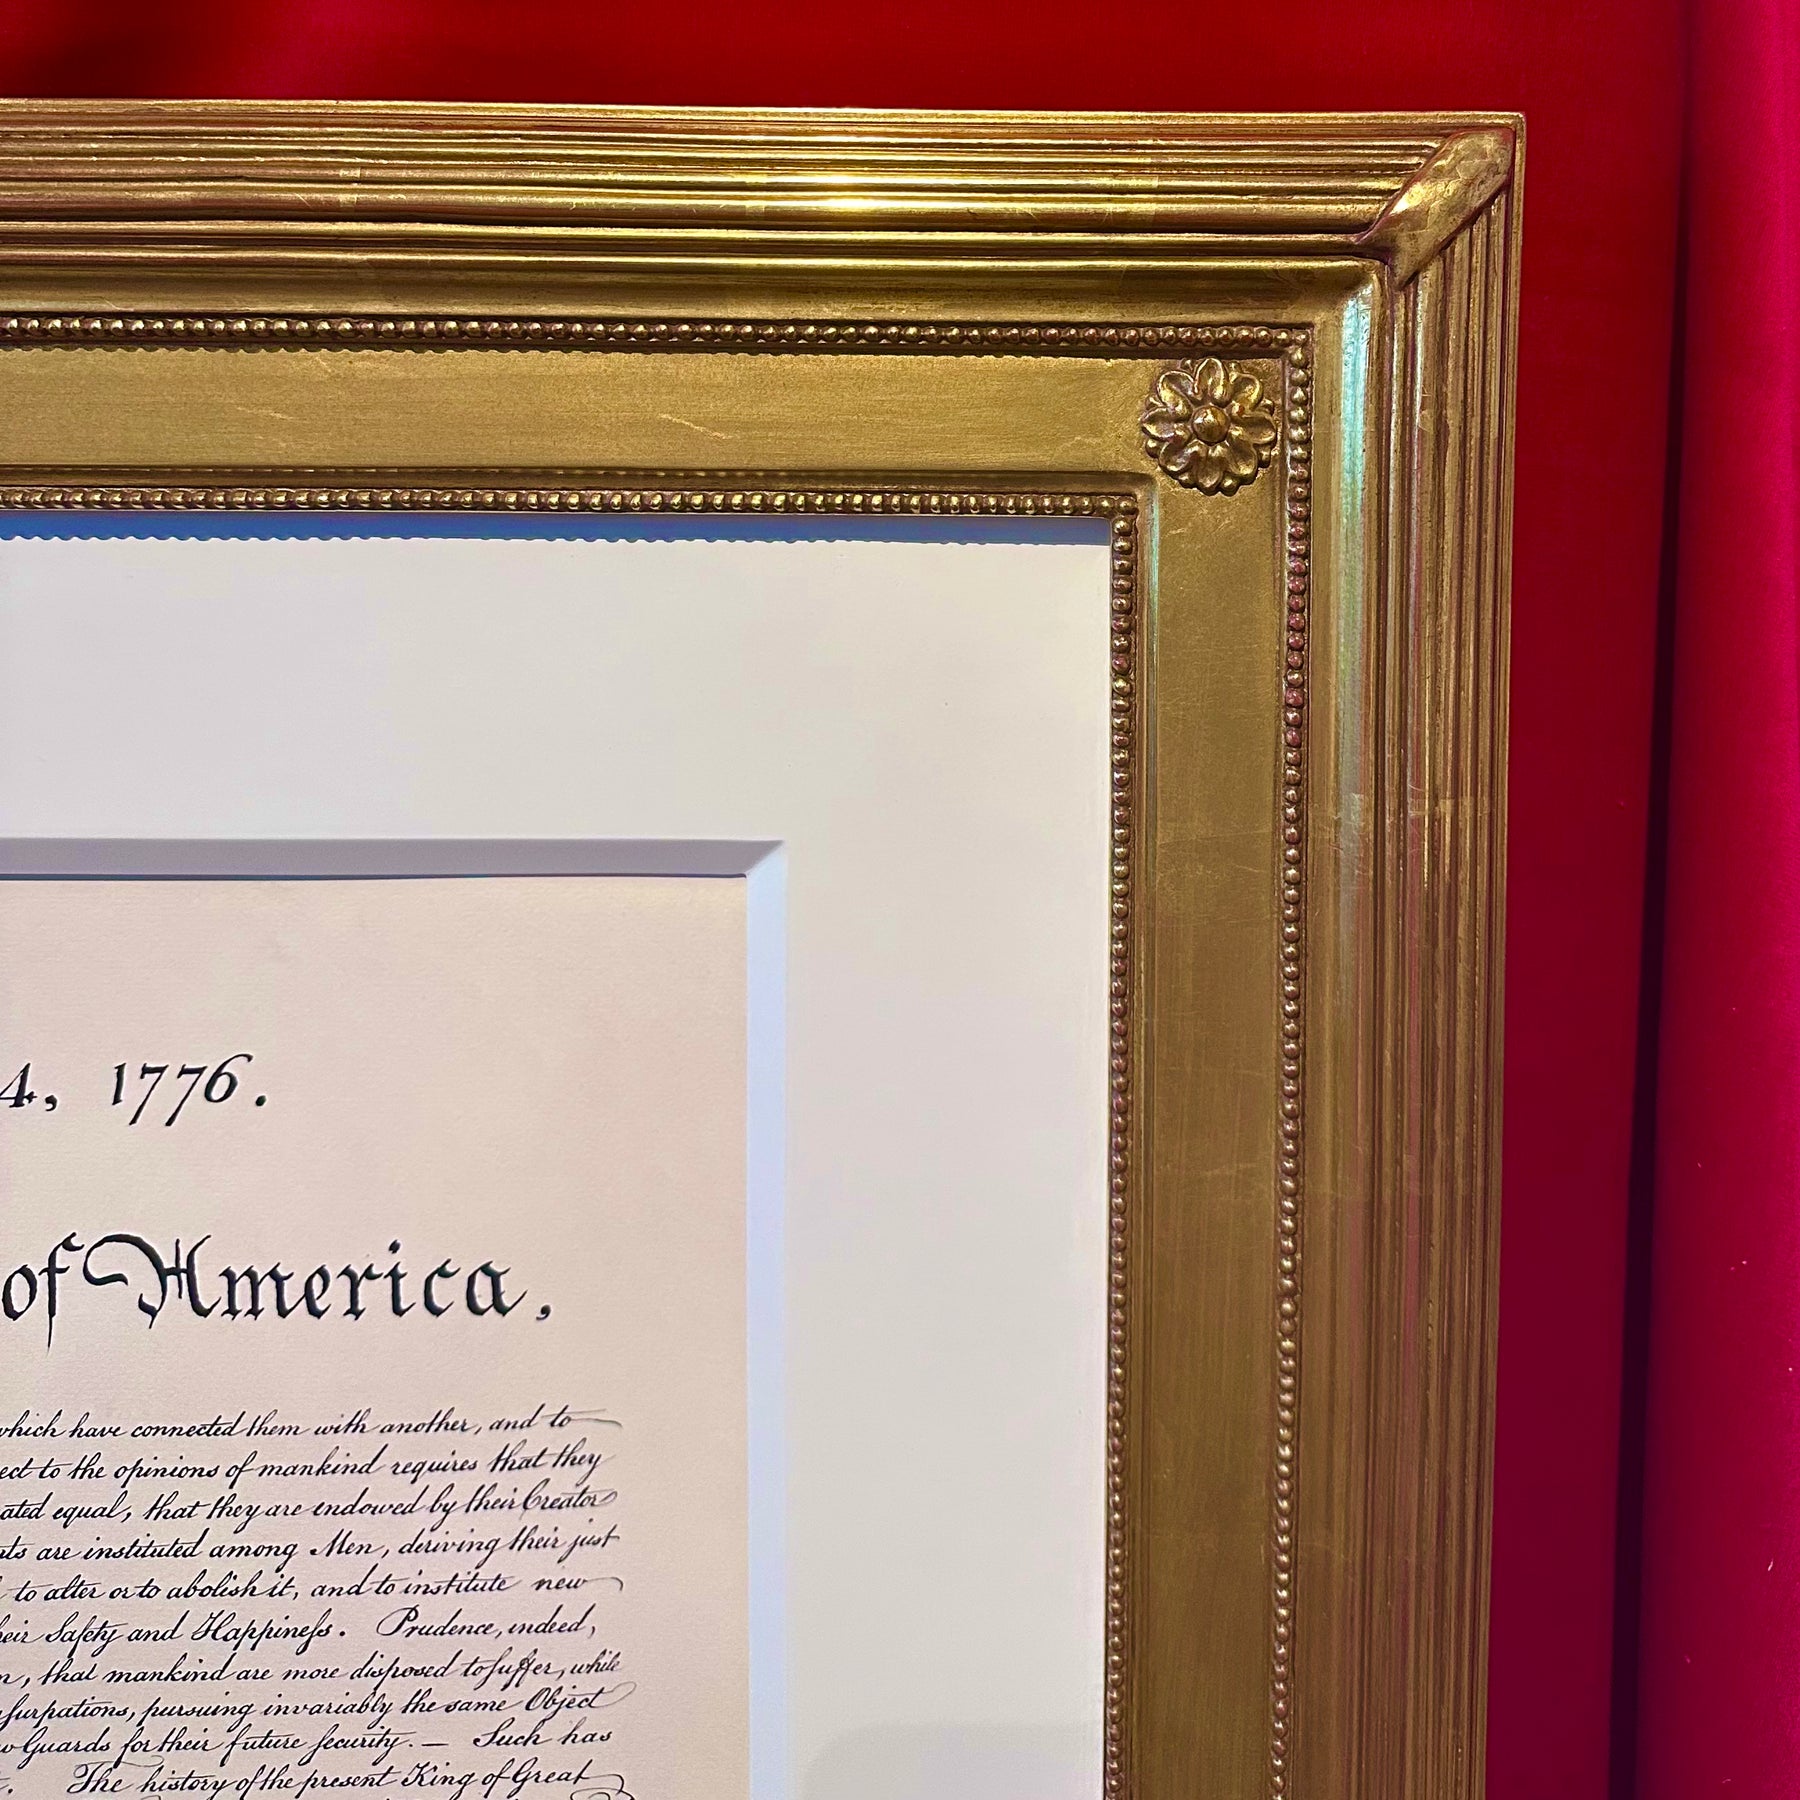 4, 1776.
of America,
which have connected them with another, and to
ect to the opinions of mankind requires that they
ated equal, that they are endowed by their Creator
nts are instituted among Men, deriving their just
to alter or to abolish it, and to institute new
heir Safety and Happineſs. Prudence, indeed,
n, that mankind are more disposed to ſuffer, while
uſurpations, pursuing invariably the same Object
w Guards for their future ſecurity.— Such has
. The history of the present King of Great